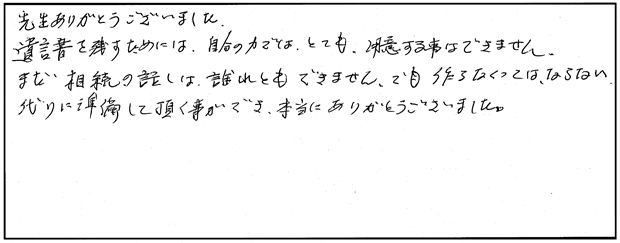 先生ありがとうございました.
遺言書を残すためには、自分の力では、とても、用意する事はできません、
まだ 相続の話しは、誰れともできません、でも 作らなくっては、ならない.
代りに準備して頂く事ができ、本当にありがとうございました。